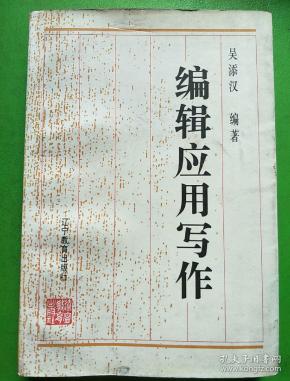 吴添汉 编著
编辑应用写作
辽宁教育出版社
孔夫子旧书网